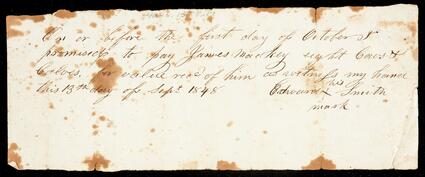 On or before the first day of October I
promised to pay James Mackey eight Cows &
Calves, for value recd of him as witness my hand
this 13th day of Sept 1848
his
Edward x Smith
mark